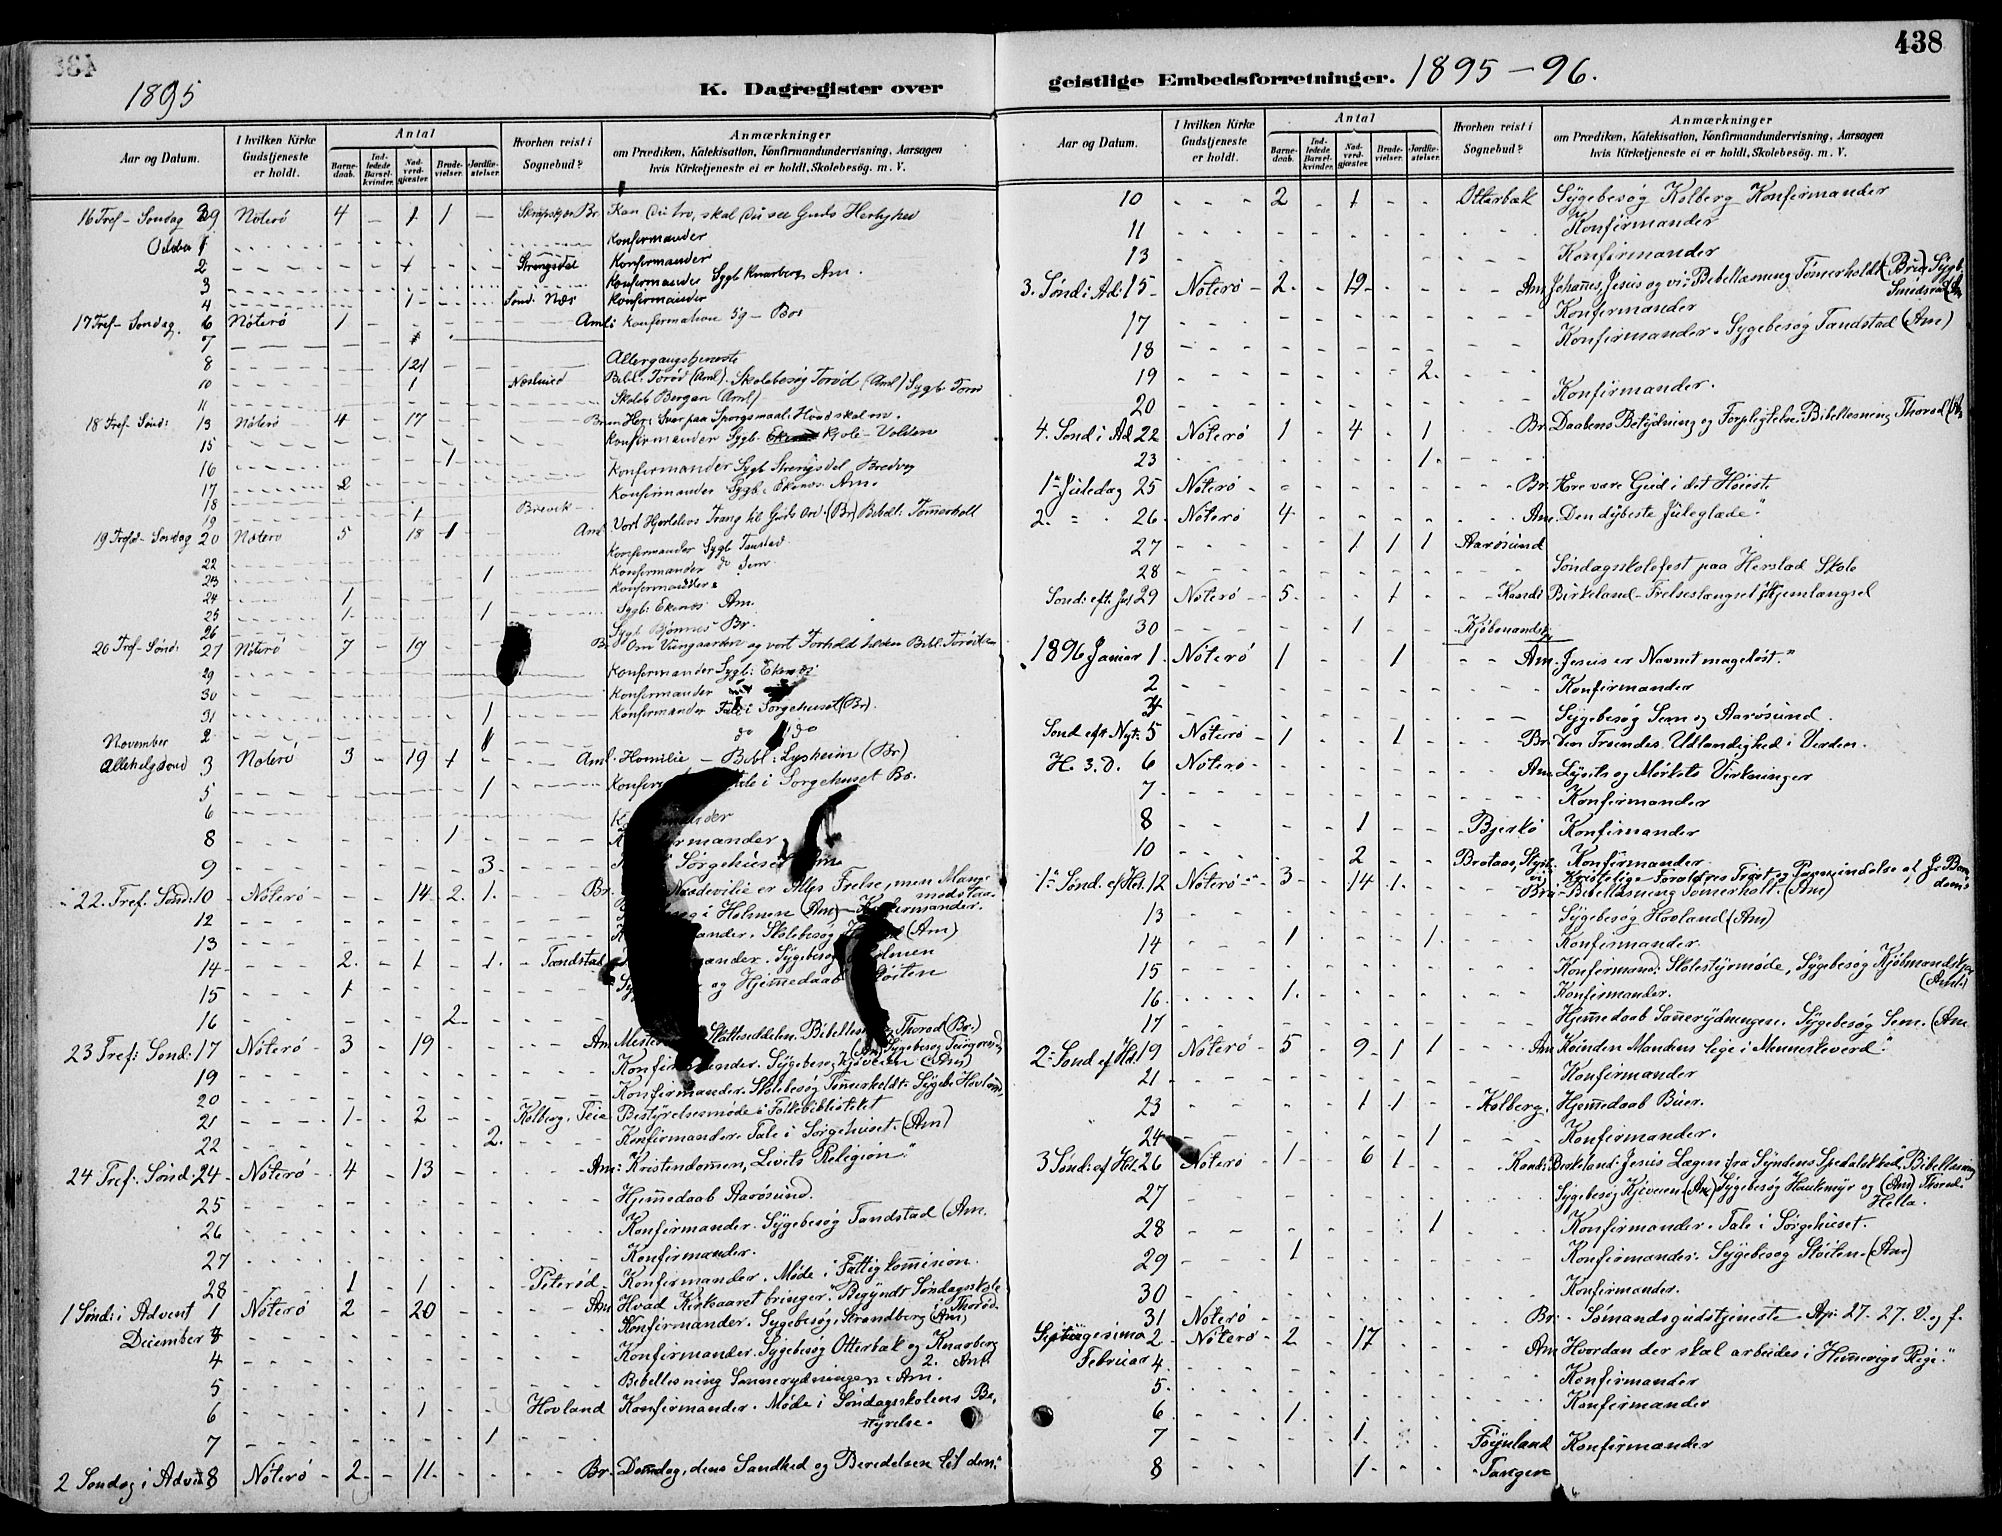 438
1895
K. Dagregister over
Aar og Datum.
I hvilken Kirke Gudstjeneste er holdt.
Antal
Barnedaab.
Indledede Barselkvinder.
Nadverdgjæster.
Brudevielser.
Jordfæstelser.
Hvorhen reist i Sognebud?
Anmærkninger
om Prædiken, Katekisation, Konfirmandundervisning, Aarsagen
hvis Kirketjeneste ei er holdt, Skolebesøg. m. V.
16 Tref- Søndag 29 Nøterø 4 - 1 1 - Br. Kan du tro, skal du see Guds Herlighed
October 1 Konfirmander
2 Strengsdal Konfirmander
3 Konfirmander Sygb Knarberg Am.
4 1 Sønd: Næs Konfirmander
17 Tref- Søndag. 6 Nøterø 1
7
8 121 Altergangstjeneste
10 1 Bibl: Torød (Aml). Skolebesøg Torød (Aml) Sygb Torød
11 Skoleb Bergan (Aml)
18 Tref- Sønd: 13 Nøterø 4 - 17
15 Konfirmander Sygb. Volden
16 1 Konfirmander Sygb Strengsdal, Bredveg
17 2 Konfirmander Sygb: Ekenes Am.
18 1 Brevik
19
19 Tref- Søndag 20 Nøterø 5 18 1 Aml Vort Hjertelevs Trang til Guds Ord (Br) Bibell: Tømerholt
22 Konfirmander Sygb Tanstad
23 1 Konfirmander do Sem
24 1 Konfirmander
25 1 1 Sygb: Ekenes Am.
26 Sygb Bjønnes Br.
20 Tref- Sønd: 27 Nøterø 7 - 19 Br Om Vingaarden og vort Forhold til den Bibl. Torød
29 Konfirmander Sygb: Ekenes
30 Konfirmander
31 1 Konfirmander Tale i Sorgehuset (Br).
November 2 1 do do
Allehelgdsønd 3 Nøterø 3 - 19 1 Aml. Homilie - Bibl: Lysheim (Br)
5 1 Tale i Sorgehuset Br.
6
8 1
9 3 Sørgehuset Am
22. Tref. Sønd: 10 Nøterø 14 2 1 Br. er Alles Frelse, men Mange modstaa
12 i Holmen (Am) Konfirmander.
13 Skolebesøg (Am)
14 2 - 1 - 1 Tandstad Sygebesøg Holmen
15 1 og Hjemmedaab Støiten
16 2
23 Tref: Sønd: 17 Nøterø 3 - 19 Am Skattesedelen. Bibellesn Thorød (Br.)
19 Sygebesøg Kjøveien (Am)
20 Konfirmander. Skolebesøg Tømmerholdt. Sygeb: Hovland
21 1 - 2 Kolberg, Teie Bestyrelsesmøde i Folkebibliotektet
22 2. Konfirmander. Tale i Sorgehuset. (Am)
24 Tref. Sønd: 24 Nøterø 4 - 13 Am: Kristendommen, Livets Religion"
25 Hjemmedaab Aarøsund.
26 Konfirmander. Sygebesøg Tandstad (Am.
27 Konfirmander.
28 1 1 Peterød. Konfirmander. Møde i Fattigkommision.
1 Sønd: i Advent 1 Nøterø 2 - 20 Am Hvad Kirkeaaret bringer. Begyndt Søndagsskole i Thorød.
December 3 Konfirmander. Sygebesøg Strandberg (Am)
4 Konfirmander. Sygebesøg Otterbæk og Knarberg 2. Am.
5 Bibellesning Sannerydningen. Am.
6 1 Hovland Konfirmander. Møde i Søndagsskolens Bestyrelse.
7 1
2 Søndag i Advent 8 Nøterø 2 - 11 Br. Domdag, dens Sandhed og Beredelsen til den."
geistlige Embedsforretninger. 1895-96.
Aar og Datum.
I hvilken Kirke Gudstjeneste er holdt.
Antal
Barnedaab.
Indledede Barselkvinder.
Nadverdgjæster.
Brudevielser.
Jordfæstelser.
Hvorhen reist i Sognebud?
Anmærkninger
om Prædiken, Katekisation, Konfirmandundervisning, Aarsagen
hvis Kirketjeneste ei er holdt, Skolebesøg. m. V.
10 2 - 1 Otterbæk Sygebesøg Kolberg Konfirmander
11 Konfirmander
13 Konfirmander
3. Sønd: i Ad: 15 Nøterø 2 - 19 Am Johañes, Jesus og vi: Bibellæsning Tømerholdt (Br) Sygb. Smidsrød (Am
17 Konfirmander
18 Konfirmander. Sygebesøg Tandstad (Am)
19 2.
20 Konfirmander.
4. Sønd i Ad 22 Nøterø 1 - 4 - 1 Br. Daabens Betydning og Forpligtelse. Bibellesning Thorød (Am
23 1.
1 Juledag 25 Nøterø Br. Ære være Gud i det Høieste
2. 26 Nøterø 4 Am. Den dybeste Juleglæde"
27 1 1 1 Aarøsund
28 Søndagsskolefest paa Herstad Skole
Sønd: eft. Jul 29 Nøterø 5 1 Kandi Birkeland - Frelseslængsel Hjemlængsel
30 1
1896 Januar 1 Nøterø 1 1 Am. Jesus er Navnet mageløst."
2 Konfirmander
Sygebesøg Sem og Aarøsund.
Sønd eft Nyt: 5 Nøterø 1 1 Br. Den Troendes Udlændighed i Verden.
H. 3. D. 6 Nøterø Am. Lysets og Mørkets Virkninger
7 Konfirmander
8 1 Bjerkø Konfirmander
10 2 Konfirmander.
1 Sønd. ef Hel. 12 Nøterø 3 - 14 1 Bibellesning Tømerholt. (Am)
13 Sygebesøg Hovland (Am)
14 1 1 Konfirmander.
15 Konfirmand: Skolestyrmøde, Sygebesøg Kjøbmandskjær (Aml.)
16 1 Konfirmander.
17 Hjemmedaab Sannerydningen. Sygebesøg Sem. (Am
2 Sønd ef Hel. 19 Nøterø 5 - 9 1 1 Am Kvinden Mandens lige i Menneskeverd."
21 Konfirmander
23 1 1 Kolberg. Hjemmedaab Buer.
24 1 Konfirmander.
3 Sønd: ef Hel. 26 Nøterø 1 - 6 1 Kandi: Jesus Lægen fra Syndens Spedalskhed, Bibellesning Thorød.
27 Sygebesøg Kjøveien (Am) Sygebesøg Haukemyr og (Am) Hella.
28 1 Konfirmander. Tale i Sørgehuset.
29 1 Konfirmander. Sygebesøg Støiten. (Am)
30 Konfirmander.
31 Nøterø Br. Sømandsgudstjeneste Ap: 27. 27. V. og f.
Septuagesima 2 Nøterø 2 - 17 Am Hvordan der skal arbeides i Himmerigs Rige."
Februar 4 Konfirmander
5. Konfirmander
6 1.
7 1 Føynland Konfirmander
8 1 Tangen